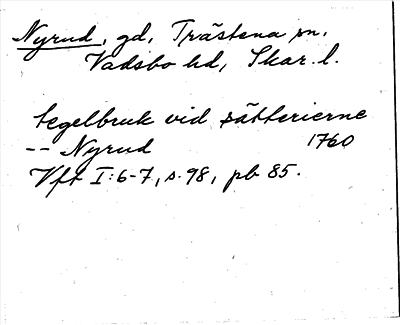 Nyrud, gd, Trästena sn.
Vadsbo hd, Skar. l.
tegelbruk vid sätterierne
-- Nyrud 1760
Vft I:6-7, s. 98, pb 85.